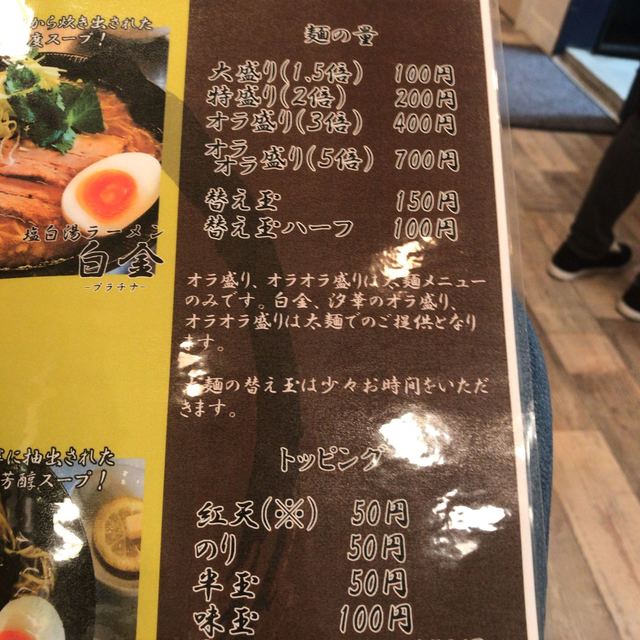 から炊き出された
度スープ！
塩白湯ラーメン
白金
-プラチナ-
に抽出された
芳醇スープ！
麺の量
大盛り(1.5倍) 100円
特盛り(2倍) 200円
オラ盛り(3倍) 400円
オラオラ盛り(5倍) 700円
替え玉 150円
替え玉ハーフ 100円
オラ盛り、オラオラ盛りは太麺メニュー
のみです。白金、汐華のオラ盛り、
オラオラ盛りは太麺でのご提供となり
ます。
麺の替え玉は少々お時間をいただ
きます。
トッピング
紅天(※) 50円
のり 50円
半玉 50円
味玉 100円